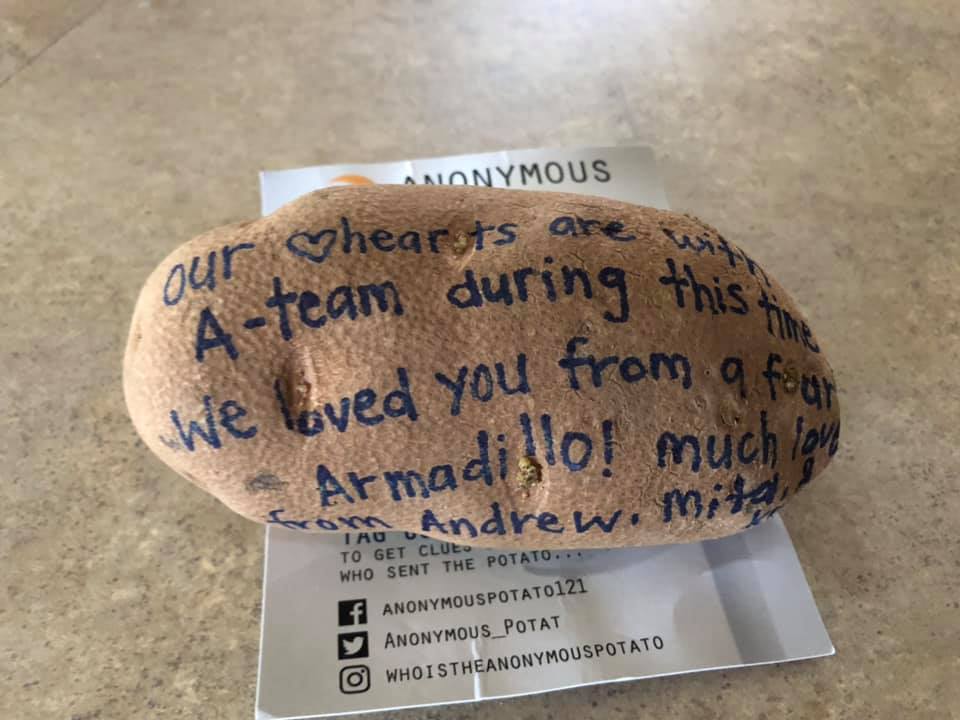 ANONYMOUS
our ♡hearts are with
A-team during this time
We loved you from a four
Armadillo! much love
from Andrew. Mita,
TO GET CLUES
WHO SENT THE POTATO...
ANONYMOUSPOTATO121
ANONYMOUS_POTAT
WHOISTHEANONYMOUSPOTATO